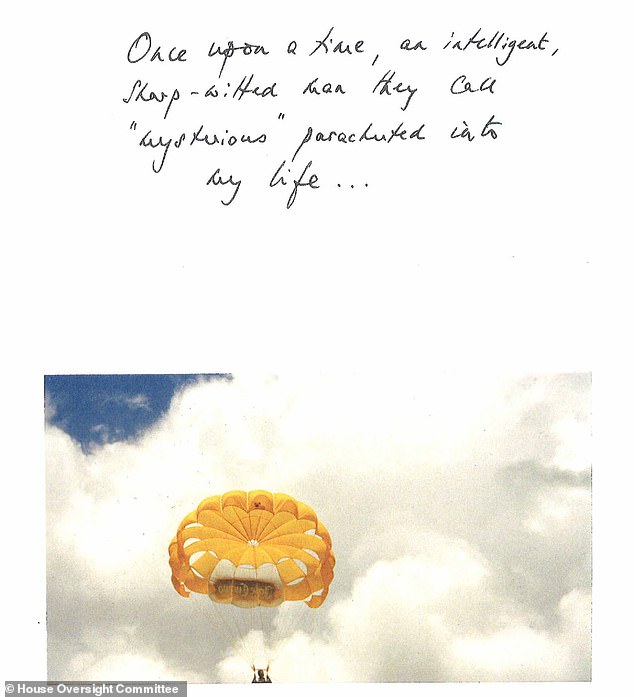 Once upon a time, an intelligent,
sharp-witted man they call
"mysterious" parachuted into
my life...
© House Oversight Committee